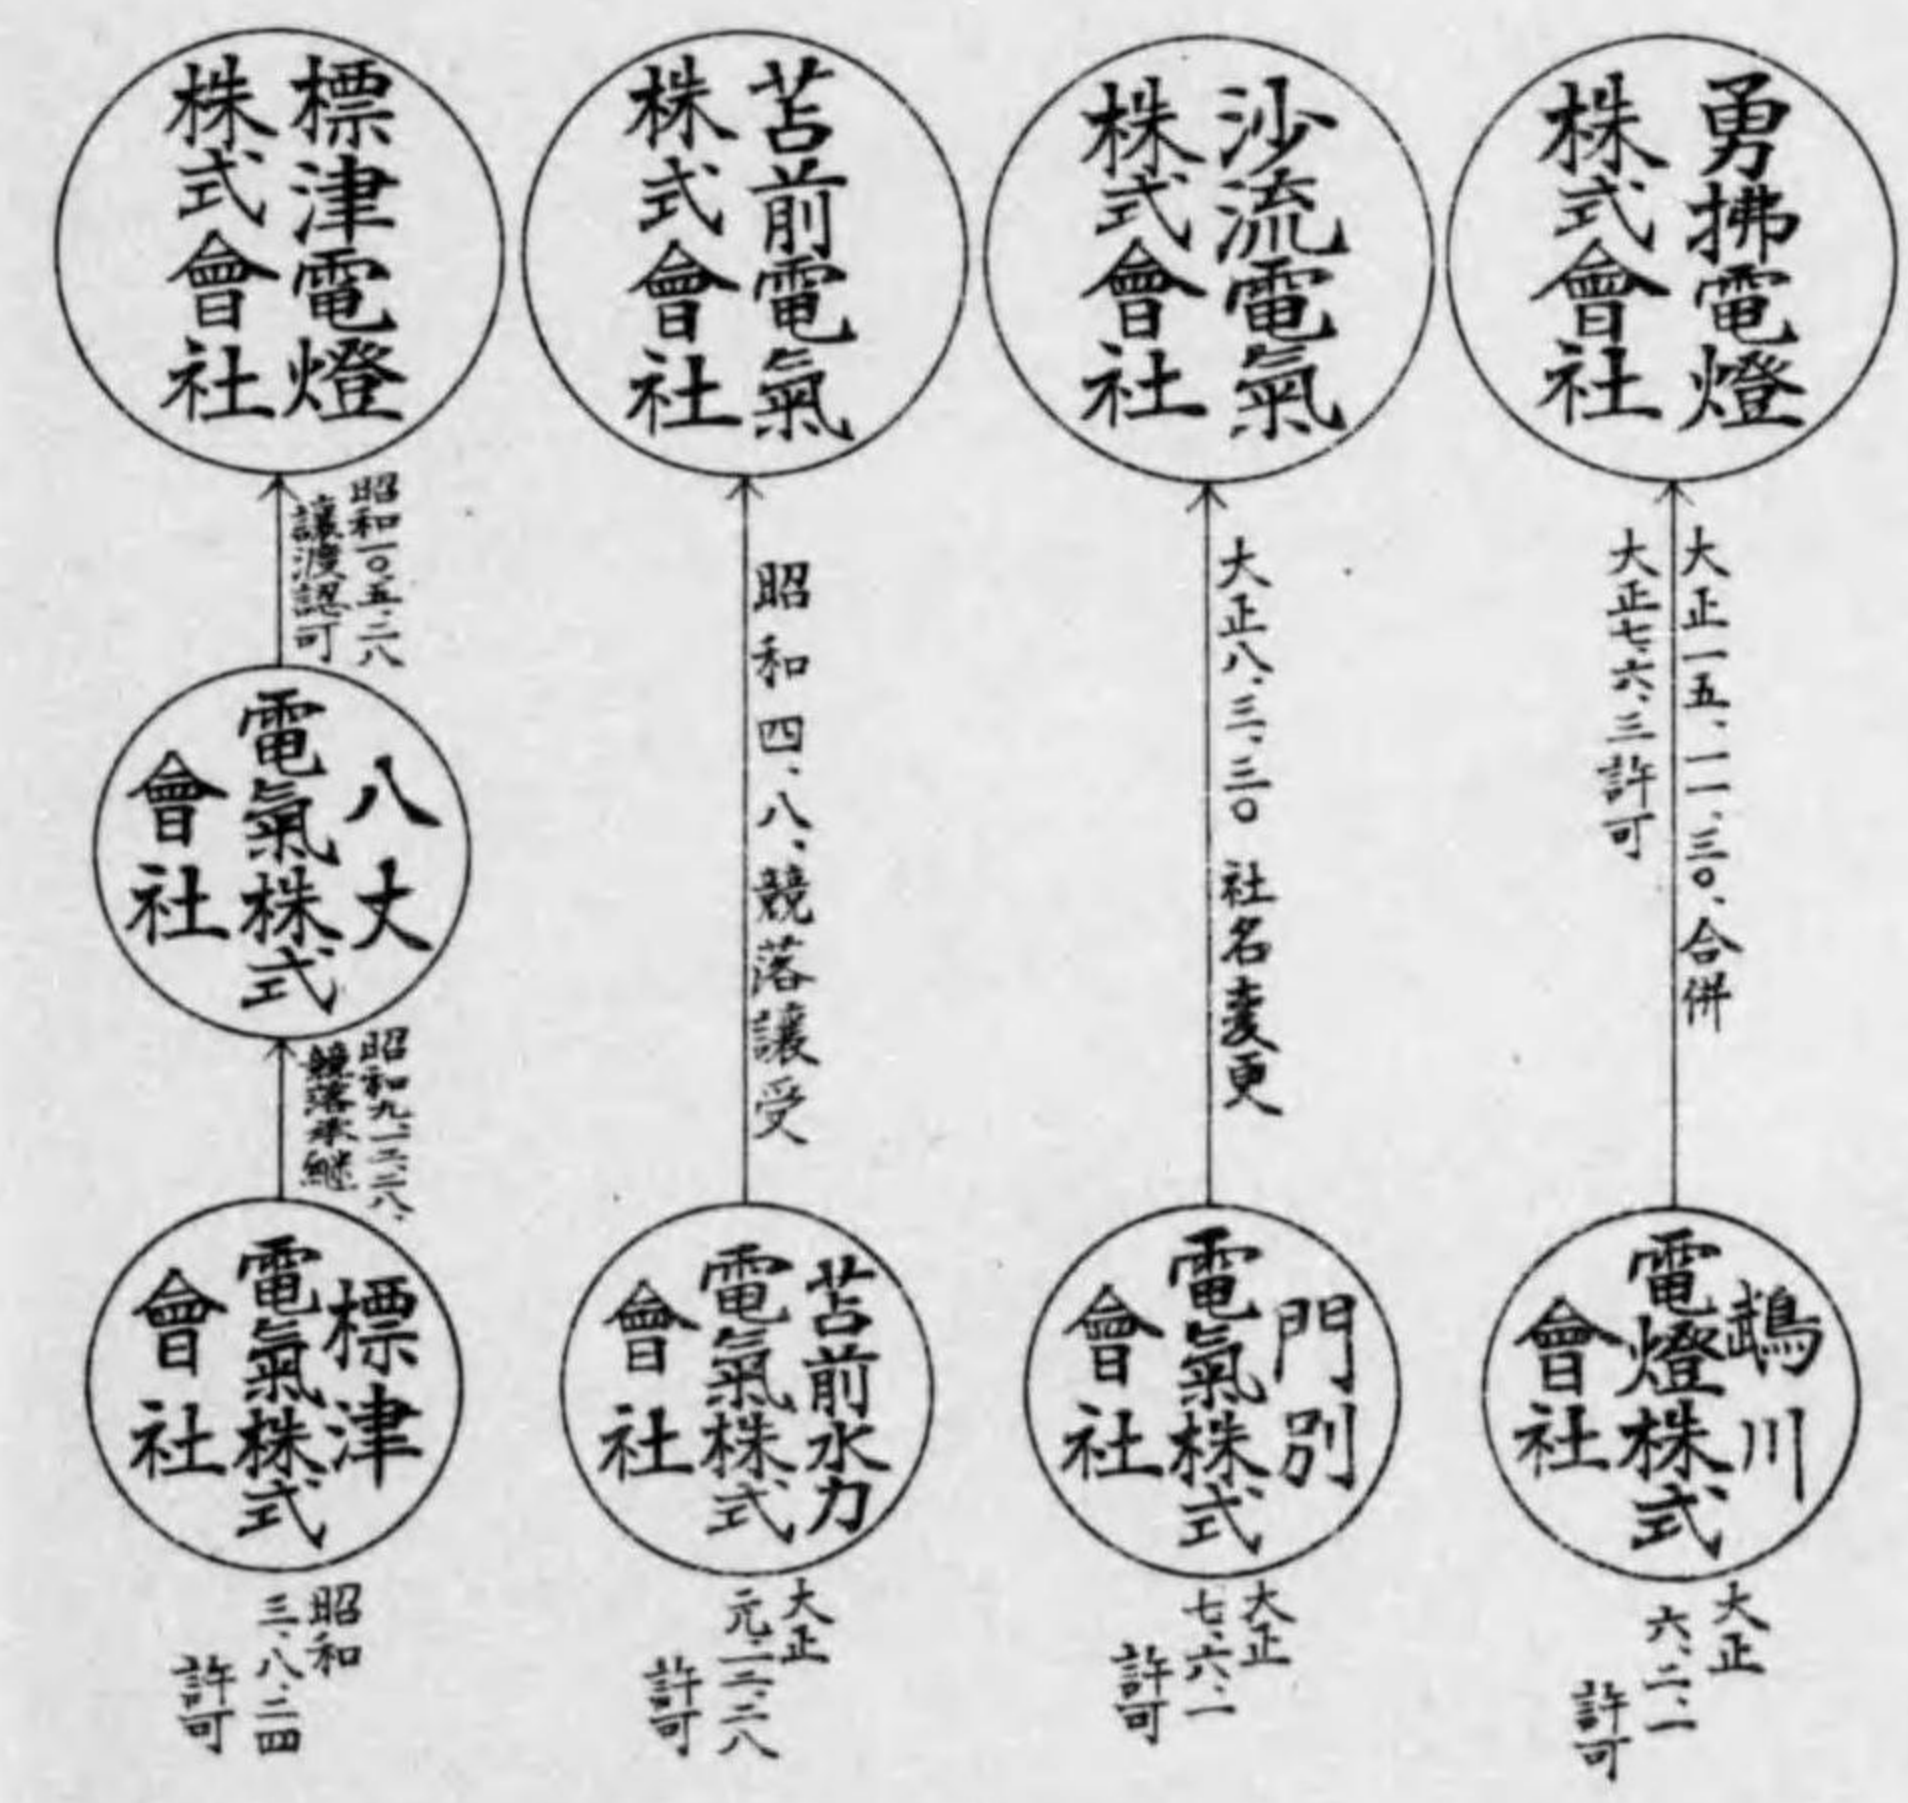 勇拂電燈
株式會社
大正一五、一一、三〇、合併
大正七、六、三許可
鵡川
電燈株式
會社
大正
六、二、一
許可
沙流電氣
株式會社
大正八、三、三〇 社名変更
門別
電氣株式
會社
大正
七、六、一
許可
苫前電氣
株式會社
昭和四、八、競落讓受
苫前水力
電氣株式
會社
大正
元、一二、二八
許可
標津電燈
株式會社
昭和一〇、五、二八
讓渡認可
八丈
電氣株式
會社
昭和九、一二、二八、
競落承継
標津
電氣株式
會社
昭和
三、八、二四
許可